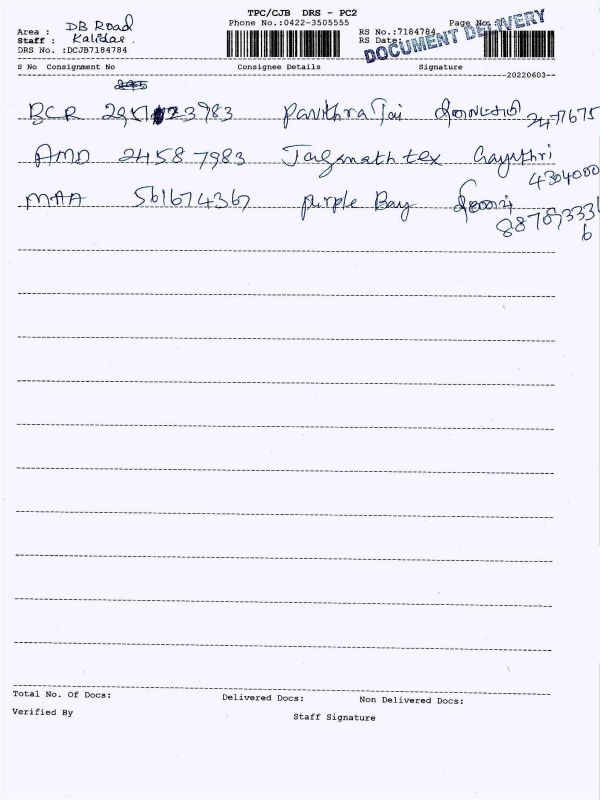 TPC/CJB DRS - PC2
Area : DB Road
Phone No.:0422-3505555
Page No.:
Staff : Kalidas.
RS No.:7184784
DRS No. :DCJB7184784
RS Date:
DOCUMENT DELIVERY
S No Consignment No Consignee Details Signature
20220603
BCR 983 Pavithra Jai 2477675
AMD 24587983 Jagannath tex Gayathri
4304000
MAA 561674367 purple Bay
Total No. Of Docs: Delivered Docs: Non Delivered Docs:
Verified By Staff Signature